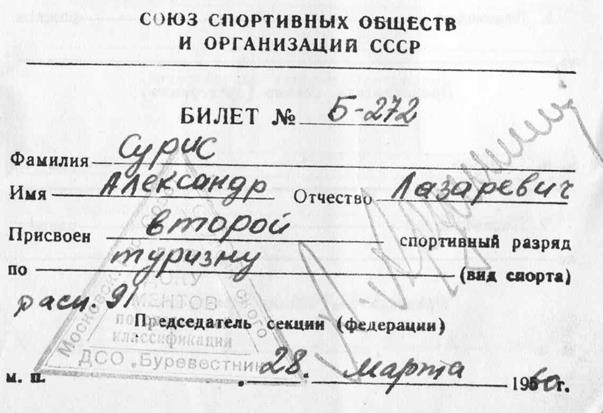 СОЮЗ СПОРТИВНЫХ ОБЩЕСТВ
И ОРГАНИЗАЦИЙ СССР
БИЛЕТ № Б-272
Фамилия Сурис
Имя Александр Отчество Лазаревич
Присвоен второй спортивный разряд
по туризму (вид спорта)
расп. 91
Председатель секции (федерации)
28. Марта 1960г.
м. п.
Московского
ДОКУ
МЕНТОВ
по
классификации
ДСО „Буревестник"